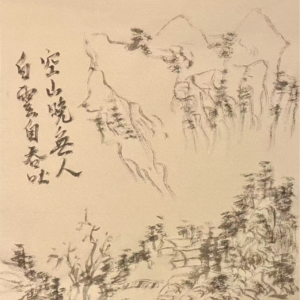 空山晚無人
白雲自吞吐